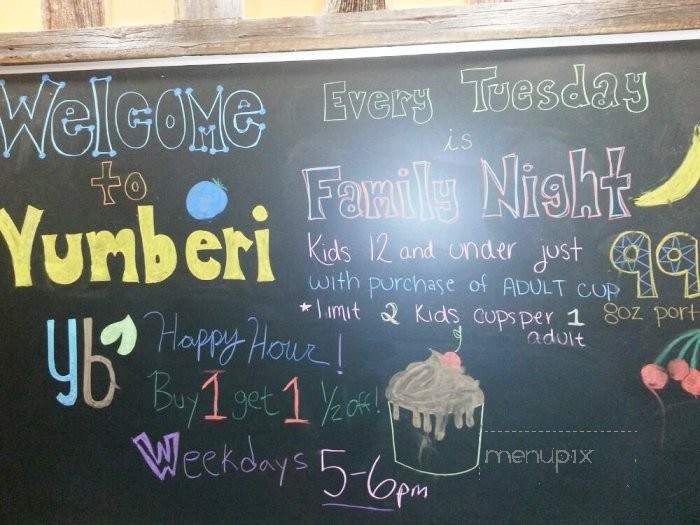 Welcome
to
Yumberi
yb
Happy Hour!
Buy 1 get 1 1/2 off!
Weekdays 5-6pm
Every Tuesday
is
Family Night
Kids 12 and under just 99
with purchase of ADULT CUP
*limit 2 Kids cups per 1 adult
8oz port
menupix